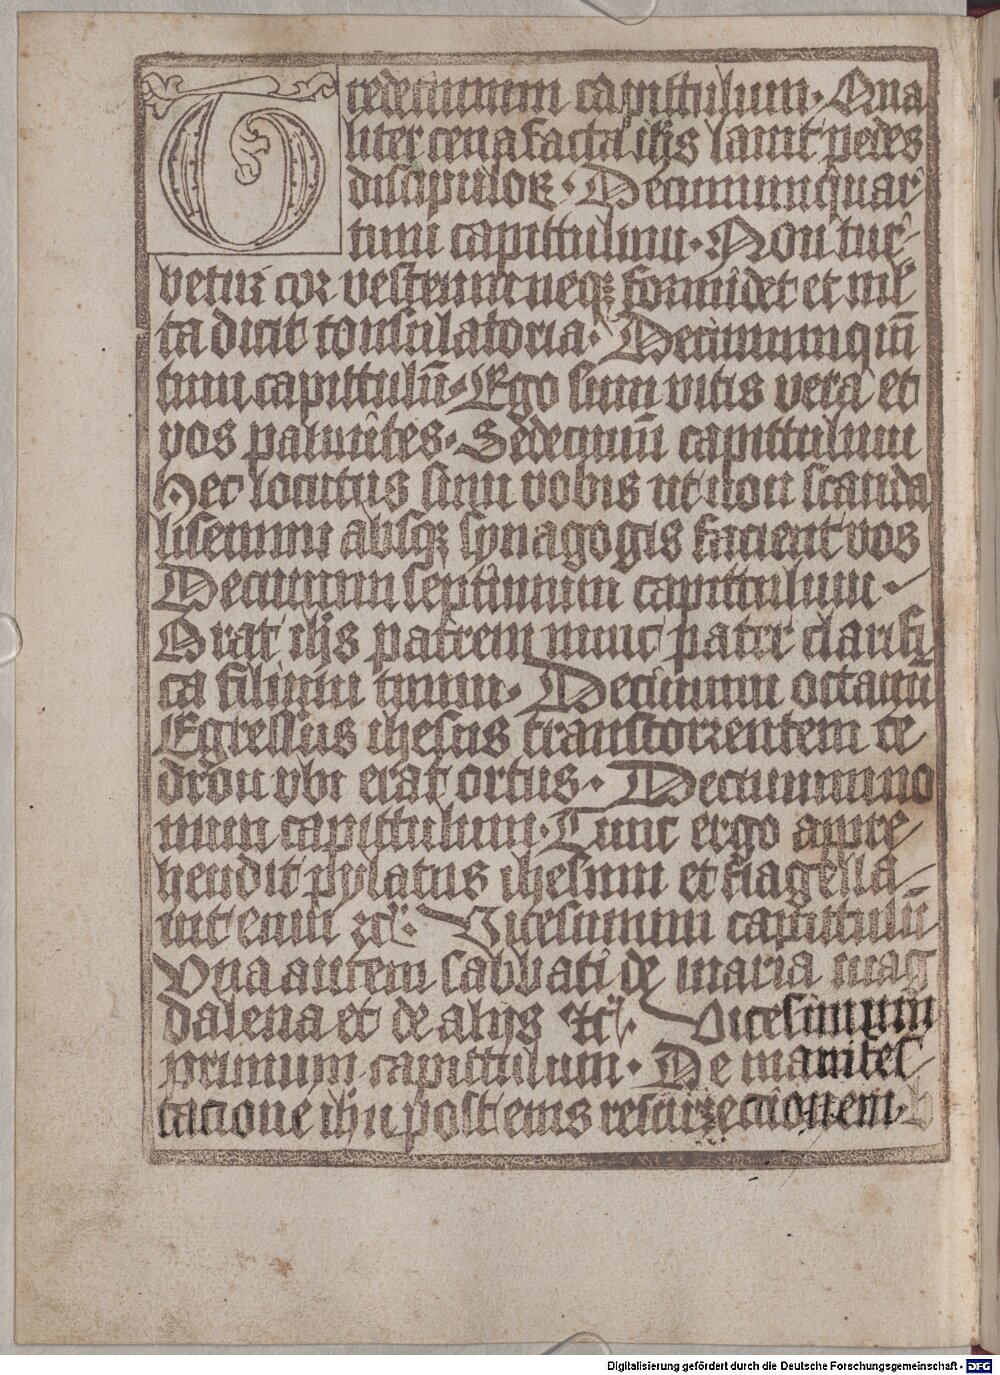 Tredecimum capittulum. Qua
liter cena facta ihs lauit pedes
discipuloꝝ. Decimumquar
tum capittulum. Non tur-
betur cor vestrum neqꝫ formidet et ml
ta dicit consulatoria. Decimumquī
tum capittulū. Ego sum vitis vera et
vos palmites. Sedecimū capittulum
Hec locutus sum vobis ut non scanda
lisemini absqꝫ synagogis facient vos
Decimum septimum capittulum.
Orat ihs patrem nunc pater clarifi
ca filium tuum. Decimum octauū
Egressus ihesus transtorrentem ce
dron vbi erat ortus. Decimumno
num capittulum. Tunc ergo apre
hendit pylatus ihesum et flagella-
uit eum ꝛc. Vicesimum capittulū
Una autem sabbati de maria mag
dalena et de alijs ꝛc. Vicesimum
primum capittulum. De manifes-
tacione ihu post eius resurrectionem. b
Digitalisierung gefördert durch die Deutsche Forschungsgemeinschaft - DFG